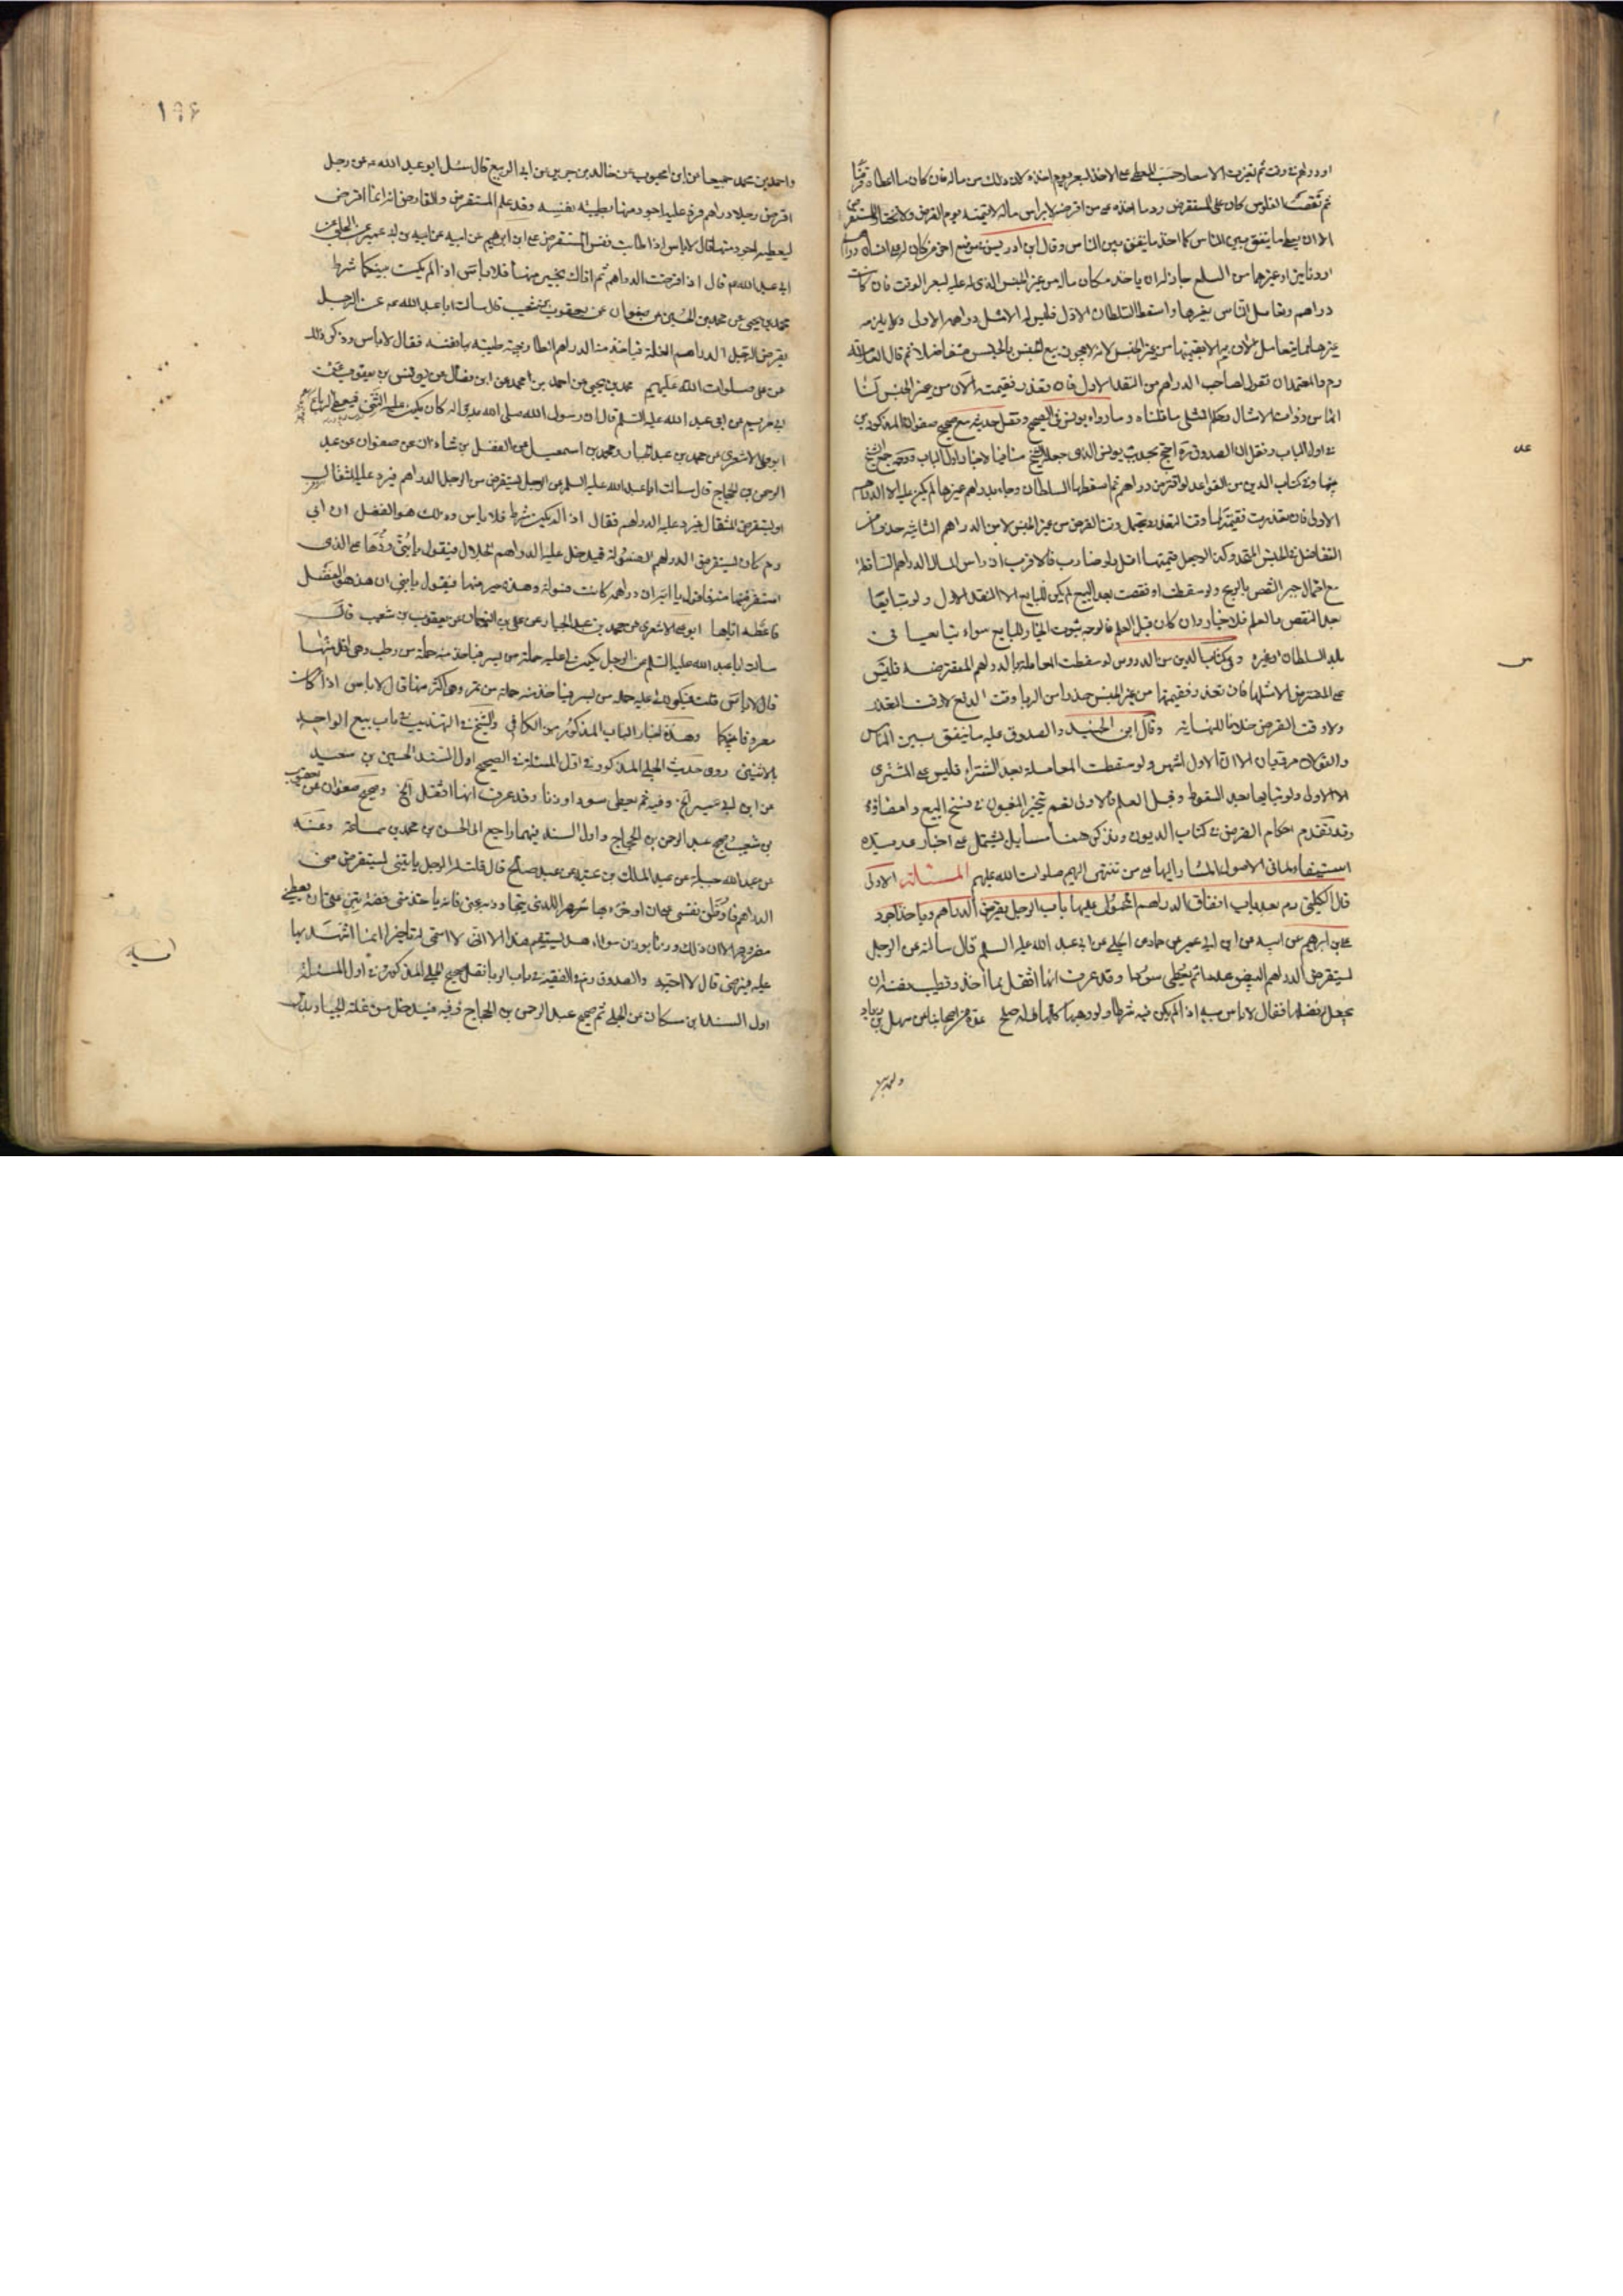 او دراهم في وقت ثم تغيرت الاسعار حسب للمعطى على الاخذ بسعر يوم اخذه لان ذلك من ماله فان كان ما اعطاه قرضا
ثم نقصت الفلوس كان على المستقرض رد ما اخذه على من اقرضه لا براس ماله لا قيمته يوم القرض ولا المستقرض
الا ان يعطى ما ينفق بين الناس كما اخذ ما ينفق بين الناس وقال ابن ادريس في موضع اخر من كان له على انسان دراهم
او دنانير او غيرهما من السلع جاز له ان ياخذ مكان ماله من غير الجنس الذي له عليه بسعر الوقت فان كانت
دراهم وتعامل الناس بغيرها واسقط السلطان الاول فليس له الا مثل دراهمه الاولى ولا يلزمه
غيرها مما يتعامل الان بها الا بقيمتها من غير الجنس لانه لا يجوز بيع الجنس بالجنس متفاضلا ثم قال العلامة
ره والمعتمد ان نقول لصاحب الدراهم من النقد الاول فان تعذر فقيمته الان من غير الجنس لنا
انها من ذوات الامثال وحكم المثلى ما قلناه وما رواه يونس في الصحيح ونقل حديثه مع صحيح صفوان المذكورين
في اول الباب ونقل ان الصدوق ره احتج بحديث يونس الذي جعله الشيخ منافيا لاخبار اول الباب ووجه جمع الشيخ
بينها وفي كتاب الدين من القواعد لو اقترض دراهم ثم اسقطها السلطان وجاء بدراهم غيرها لم يكن عليه الا الدراهم
الاولى فان تعذرت فقيمتها وقت التعذر ويحتمل وقت القرض من غير الجنس لا من الدراهم الثانية حذرا من
التفاضل في الجنس المتحد وكذا لو جعل قيمتها اقل ولو ضارب فالاقرب ان راس المال الدراهم الساقطة
مع احتمال جبر النقص بالربح ولو سقطت او نقصت بعد البيع لم يكن للبايع الا النقد الاول ولو تبايعا
بعد النقص والعلم فلا خيار وان كان قبل العلم فالوجه ثبوت الخيار للبايع سواء تبايعا في
بلد السلطان او غيره وفي كتاب الدين من الدروس لو سقطت المعاملة بالدراهم المقترضة فليس
على المقترض الا مثلها فان تعذر فقيمتها من غير الجنس حذرا من الربا وقت الدفع لا وقت التعذر
ولا وقت القرض خلافا للنهاية وقال ابن الجنيد والصدوق عليه ما ينفق بين الناس
والقولان مرويان الا ان الاول اشهر ولو سقطت المعاملة بعد الشراء فليس على المشترى
الا الاولى ولو تبايعا بعد السقوط وقبل العلم فالاولى نعم يتخير المغبون في فسخ البيع وامضائه
وقد تقدم احكام القرض في كتاب الديون ونذكر ههنا مسايل يشتمل على اخبار عديدة
استيفاء لما في الاصول المشار اليها عمن تنتهى اليهم صلوات الله عليهم المسئلة الاولى
قال الكليني ره بعد باب انفاق الدراهم المحمول عليها باب الرجل يقرض الدراهم وياخذ اجود
علي بن ابرهيم عن ابيه عن ابن ابي عمير عن حماد عن الحلبي عن ابي عبد الله عليه السلم قال سالته عن الرجل
يستقرض الدراهم البيض عددا ثم يعطى سودا وقد عرف انها اثقل مما اخذ وتطيب نفسه ان
يجعل له فضلها فقال لا باس به اذا لم يكن فيه شرط ولو وهبها كلها له صلح عدة من اصحابنا عن سهل بن زياد
واحمد بن
عـه
١٩۶
واحمد بن محمد جميعا عن ابن محبوب عن خالد بن جرير عن ابي الربيع قال سئل ابو عبد الله ع عن رجل
اقرض رجلا دراهم فرد عليه اجود منها بطيبة نفسه وقد علم المستقرض والقارض انه انما اقرضه
ليعطيه اجود منها قال لا باس اذا طابت نفس المستقرض علي ابن ابرهيم عن ابيه عن ابن ابي عمير عن الحلبي عن
ابي عبد الله ع قال اذا اقرضت الدراهم ثم اتاك بخير منها فلا باس اذا لم يكن بينكما شرط
محمد بن يحيى عن محمد بن الحسين عن صفوان عن يعقوب بن شعيب قال سالت ابا عبد الله ع عن الرجل
يقرض الرجل الدراهم الغلة فياخذ منه الدراهم الطازجية طيبة بها نفسه فقال لا باس وذكر ذلك
عن علي صلوات الله عليهم محمد بن يحيى عن احمد بن محمد عن ابن فضال عن يونس بن يعقوب عن
ابي مريم عن ابي عبد الله عليه السلم قال ان رسول الله صلى الله عليه واله كان يكون عليه الثنى فيعطى الرباع
ابو على الاشعرى عن محمد بن عبد الجبار ومحمد بن اسمعيل عن الفضل بن شاذان عن صفوان عن عبد
الرحمن بن الحجاج قال سالت ابا عبد الله عليه السلم عن الرجل يستقرض من الرجل الدراهم فيرد عليه المثقال
او يستقرض المثقال فيرد عليه الدراهم فقال اذا لم يكن شرط فلا باس وذلك هو الفضل ان ابي
ره كان يستقرض الدراهم الفسولة فيدخل عليه الدراهم الجلال فيقول يا بنى ردها على الذي
استقرضتها منه فاقول يا ابه ان دراهمه كانت فسولة وهذه خير منها فيقول يا بني ان هذا هو الفضل
فاعطه اياها ابو على الاشعرى عن محمد بن عبد الجبار عن علي بن النعمان عن يعقوب بن شعيب قال
سالت ابا عبد الله عليه السلم عن الرجل يكون عليه جلة من بسر فياخذ منه جلة من رطب وهي اقل منها
قال لا باس قلت فيكون لي عليه جلة من بسر فياخذ منه جلة من تمر وهي اكثر منها قال لا باس اذا كان
معروفا بينكما وهذه اخبار الباب المذكور من الكافي والشيخ في التهذيب في باب بيع الواحد
بالاثنين روى حديث الحلبي المذكور في اول المسئلة في الصحيح اول السند الحسين بن سعيد
عن ابن ابي عمير الخ وفيه ثم يعطى سودا وزنا وقد عرف انها اثقل الخ وصحيح صفوان عن يعقوب
بن شعيب وصحيح عبد الرحمن بن الحجاج واول السند فيهما راجع الى الحسن بن محمد بن سماعة وعنه
عن عبد الله جبلة عن عبد الملك بن عتبة عن عبد صالح قال قلت له الرجل ياتيني يستقرض مني
الدراهم فاوطن نفسى على ان اؤخره بها شهرا للذي يتجاوز به عني فانه ياخذ مني فضة تبر على ان يعطيني
مضروبة الا ان ذلك وزنا بوزن سواء هل يستقيم هذا الا اني لا اسمى له تاخيرا انما اشهد بها
عليه فيرضى قال لا احبه والصدوق ره في الفقيه في باب الربا نقل صحيح الحلبي المذكور في اول المسئلة
اول السند ابن مسكان عن الحلبي ثم صحيح عبد الرحمن بن الحجاج وفيه فيدخل من غلته الجياد بدل